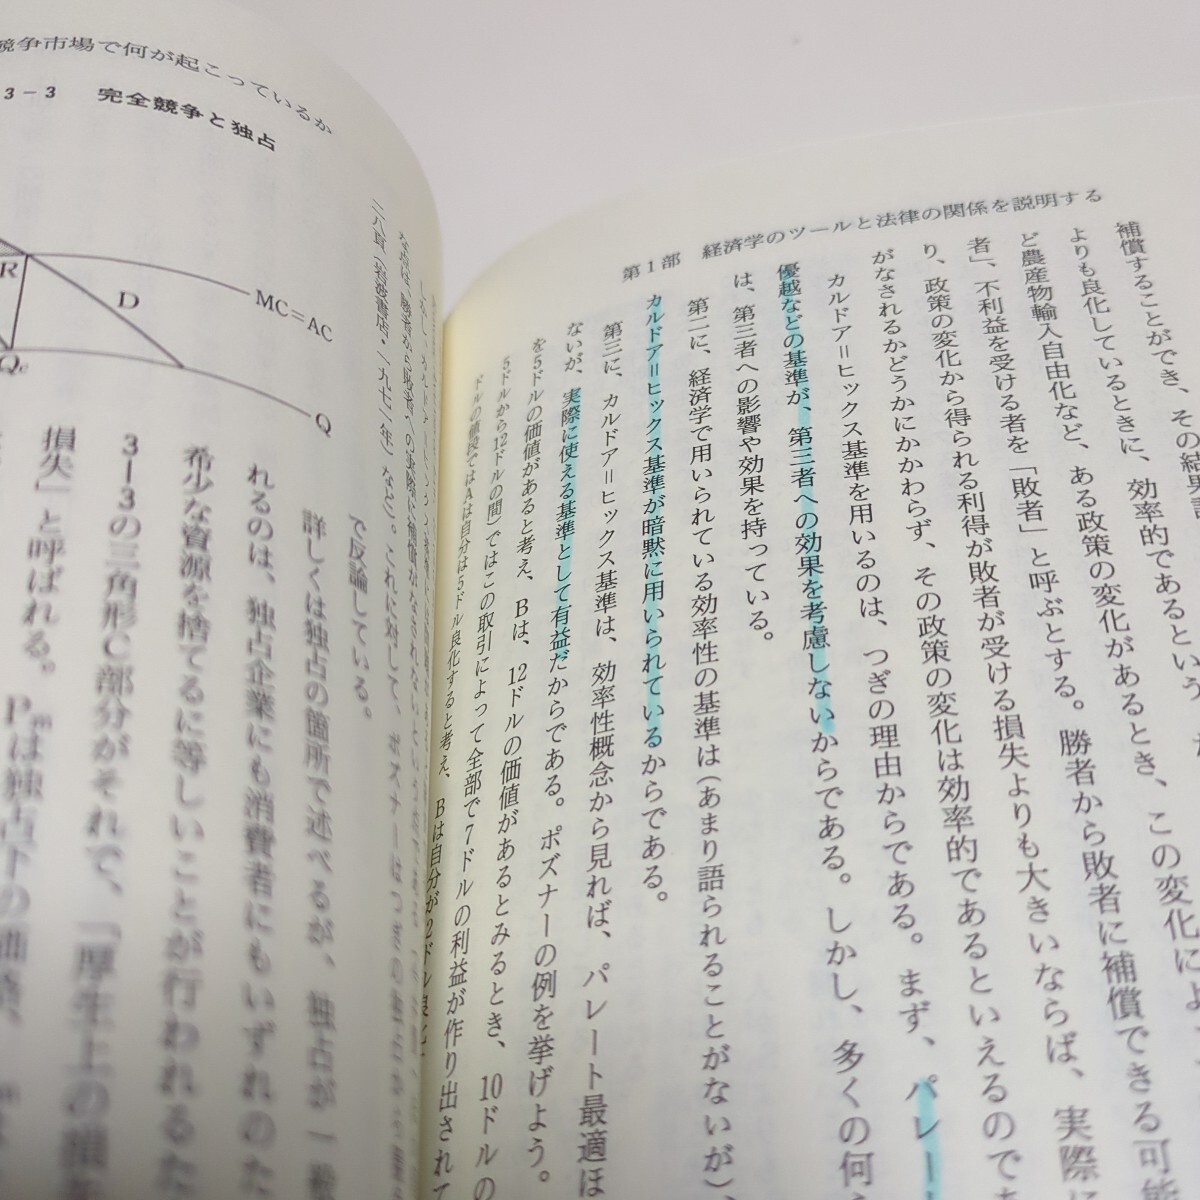 第1部 経済学のツールと法律の関係を説明する
補償することができ、その結果
よりも良化しているときに、効率的であるという。
ど農産物輸入自由化など、ある政策の変化があるとき、この変化によ
者」、不利益を受ける者を「敗者」と呼ぶとする。勝者から敗者に補償できる可能
り、政策の変化から得られる利得が敗者が受ける損失よりも大きいならば、実際に
がなされるかどうかにかかわらず、その政策の変化は効率的であるといえるので
カルドア=ヒックス基準を用いるのは、つぎの理由からである。まず、パレー
優越などの基準が、第三者への効果を考慮しないからである。しかし、多くの何
は、第三者への影響や効果を持っている。
第二に、経済学で用いられている効率性の基準は(あまり語られることがないが)、
カルドア=ヒックス基準が暗黙に用いられているからである。
第三に、カルドア=ヒックス基準は、効率性概念から見れば、パレート最適ほ
ないが、実際に使える基準として有益だからである。ポズナーの例を挙げよう。
を5ドルの価値があると考え、Bは、12ドルの価値があるとみるとき、10ドルの
5ドルから12ドルの間)ではこの取引によって全部で7ドルの利益が作り出されて
ドルの値段ではAは自分は5ドル良化すると考え、Bは自分が2ドル良化
競争市場で何が起こっているか
3-3 完全競争と独占
R
D
MC=AC
Qc
Q
な点は、勝者から敗者への実際に補償がなされないという
二八頁(岩波書店・一九七一年)など)。これに対して、ポズナーはつぎの
で反論している。
詳しくは独占の箇所で述べるが、独占が一般
れるのは、独占企業にも消費者にもいずれのた
希少な資源を捨てるに等しいことが行われるた
3-3の三角形C部分がそれで、「厚生上の損
損失」と呼ばれる。Pmは独占下の価格、